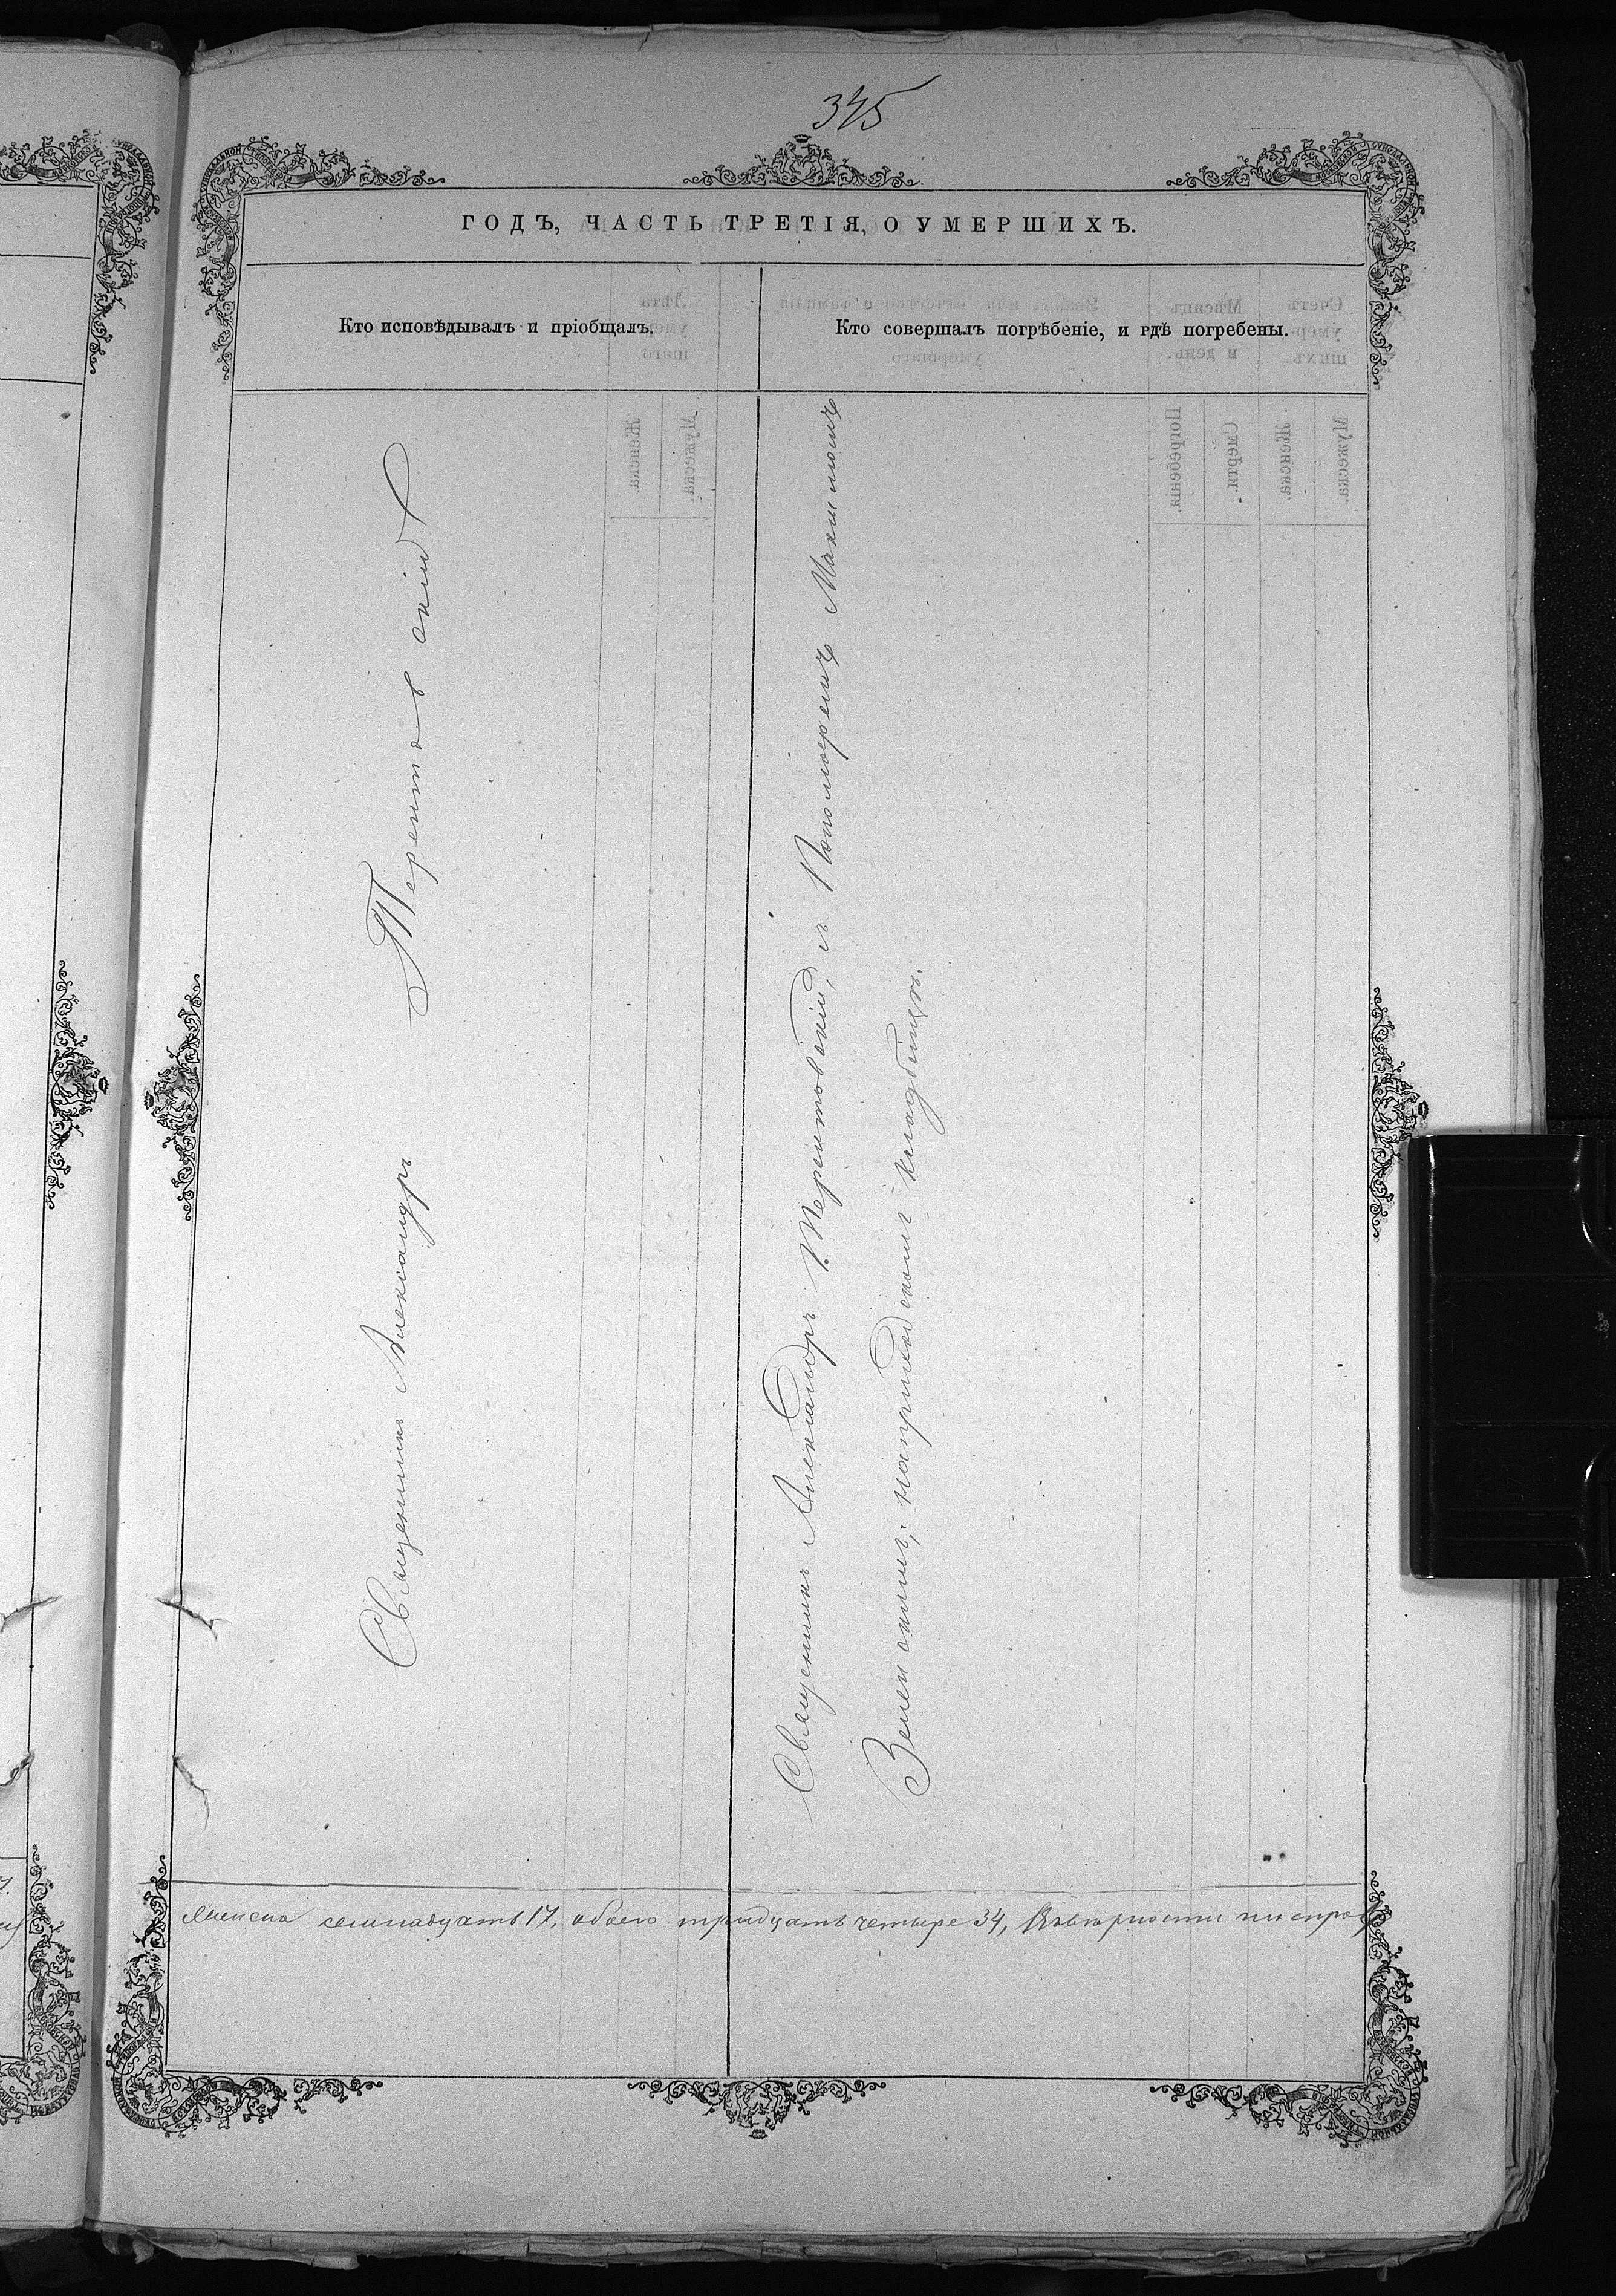 345
ГОДЪ, ЧАСТЬ ТРЕТІЯ, О УМЕРШИХЪ.
Кто исповѣдывалъ и пріобщалъ.
Кто совершалъ погрѣбеніе, и гдѣ погребены.
Священникъ Александръ Терентовскій
Священникъ Александръ Терентовскій, съ Пономаремъ Максимомъ
Зеленскимъ, на приходскомъ кладбищѣ.
Женска семнадцать 17, обоего тридцать четыре 34,